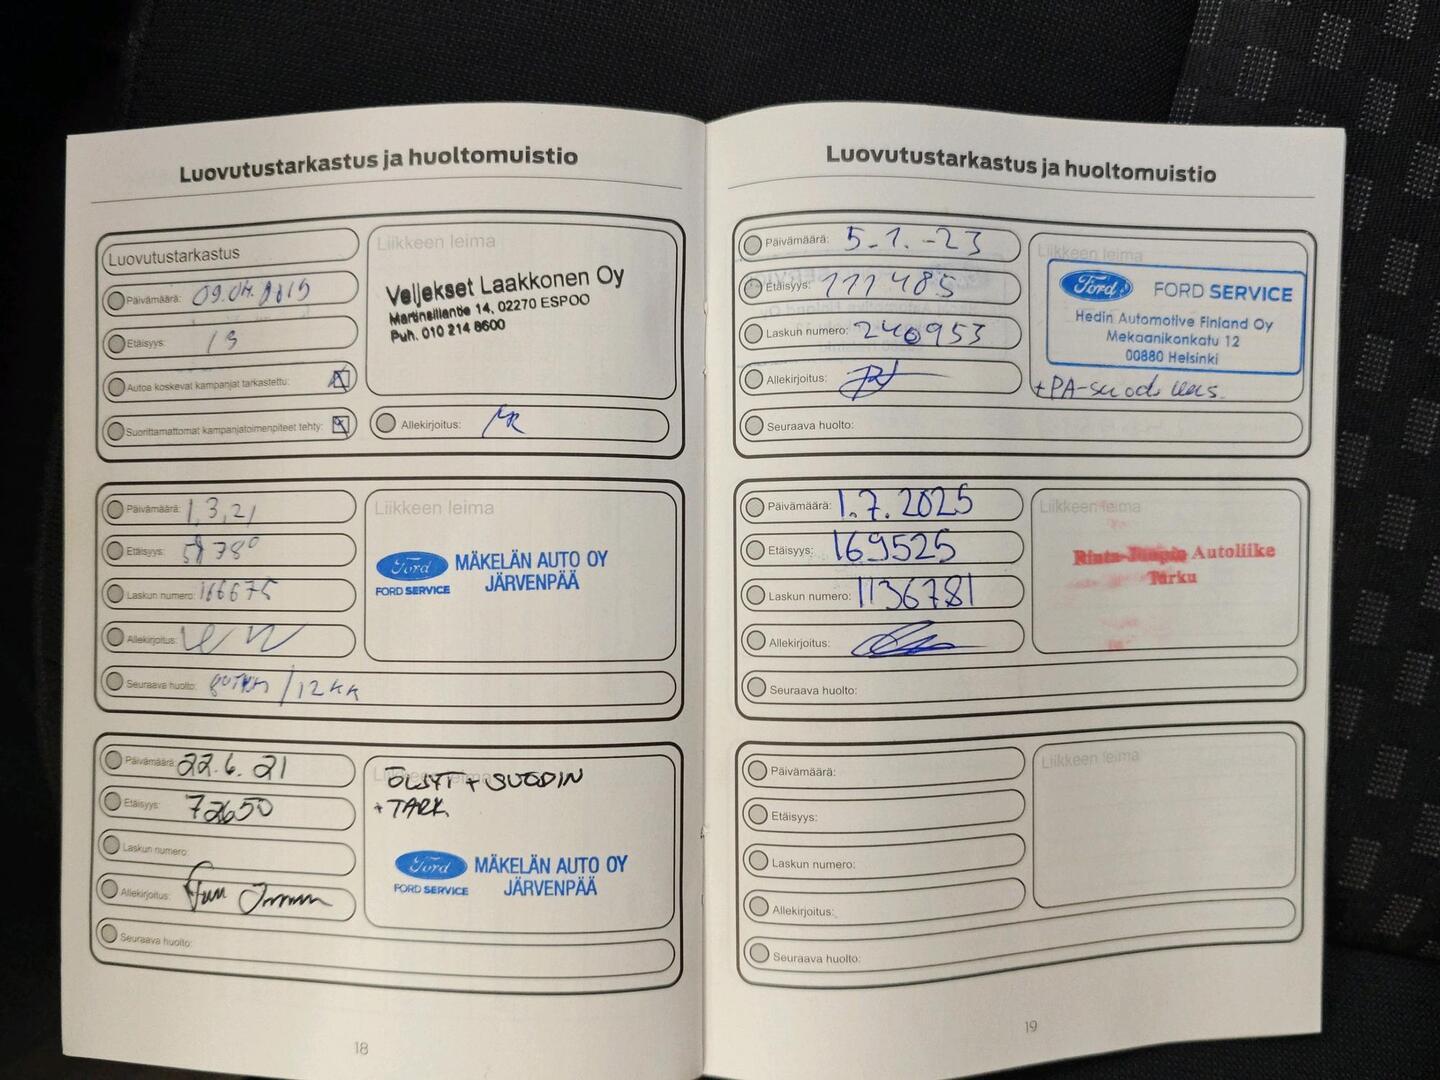 Luovutustarkastus ja huoltomuistio
Luovutustarkastus
Päivämäärä: 09.04.2019
Etäisyys:
Autoa koskevat kampanjat tarkastettu:
Suorittamattomat kampanjatoimenpiteet tehty:
Liikkeen leima
Veljekset Laakkonen Oy
Martinsillantie 14, 02270 ESPOO
Puh. 010 214 8600
Allekirjoitus:
Päivämäärä: 1.3.21
Etäisyys:
Laskun numero: 166675
Allekirjoitus:
Seuraava huolto: / 12 KK
Liikkeen leima
Ford
FORD SERVICE
MÄKELÄN AUTO OY
JÄRVENPÄÄ
Päivämäärä: 22.6.21
Etäisyys: 72650
Laskun numero:
Allekirjoitus:
Seuraava huolto:
Liikkeen leima
ÖLJYT + SUODIN
+ TARK
Ford
FORD SERVICE
MÄKELÄN AUTO OY
JÄRVENPÄÄ
18
Luovutustarkastus ja huoltomuistio
Päivämäärä: 5.1.-23
Etäisyys: 111485
Laskun numero: 240953
Allekirjoitus:
Seuraava huolto:
Liikkeen leima
Ford FORD SERVICE
Hedin Automotive Finland Oy
Mekaanikonkatu 12
00880 Helsinki
Päivämäärä: 1.7.2025
Etäisyys: 169525
Laskun numero: 1136781
Allekirjoitus:
Seuraava huolto:
Liikkeen leima
Rinta-Jouppin Autoliike
Turku
Päivämäärä:
Etäisyys:
Laskun numero:
Allekirjoitus:
Seuraava huolto:
Liikkeen leima
19